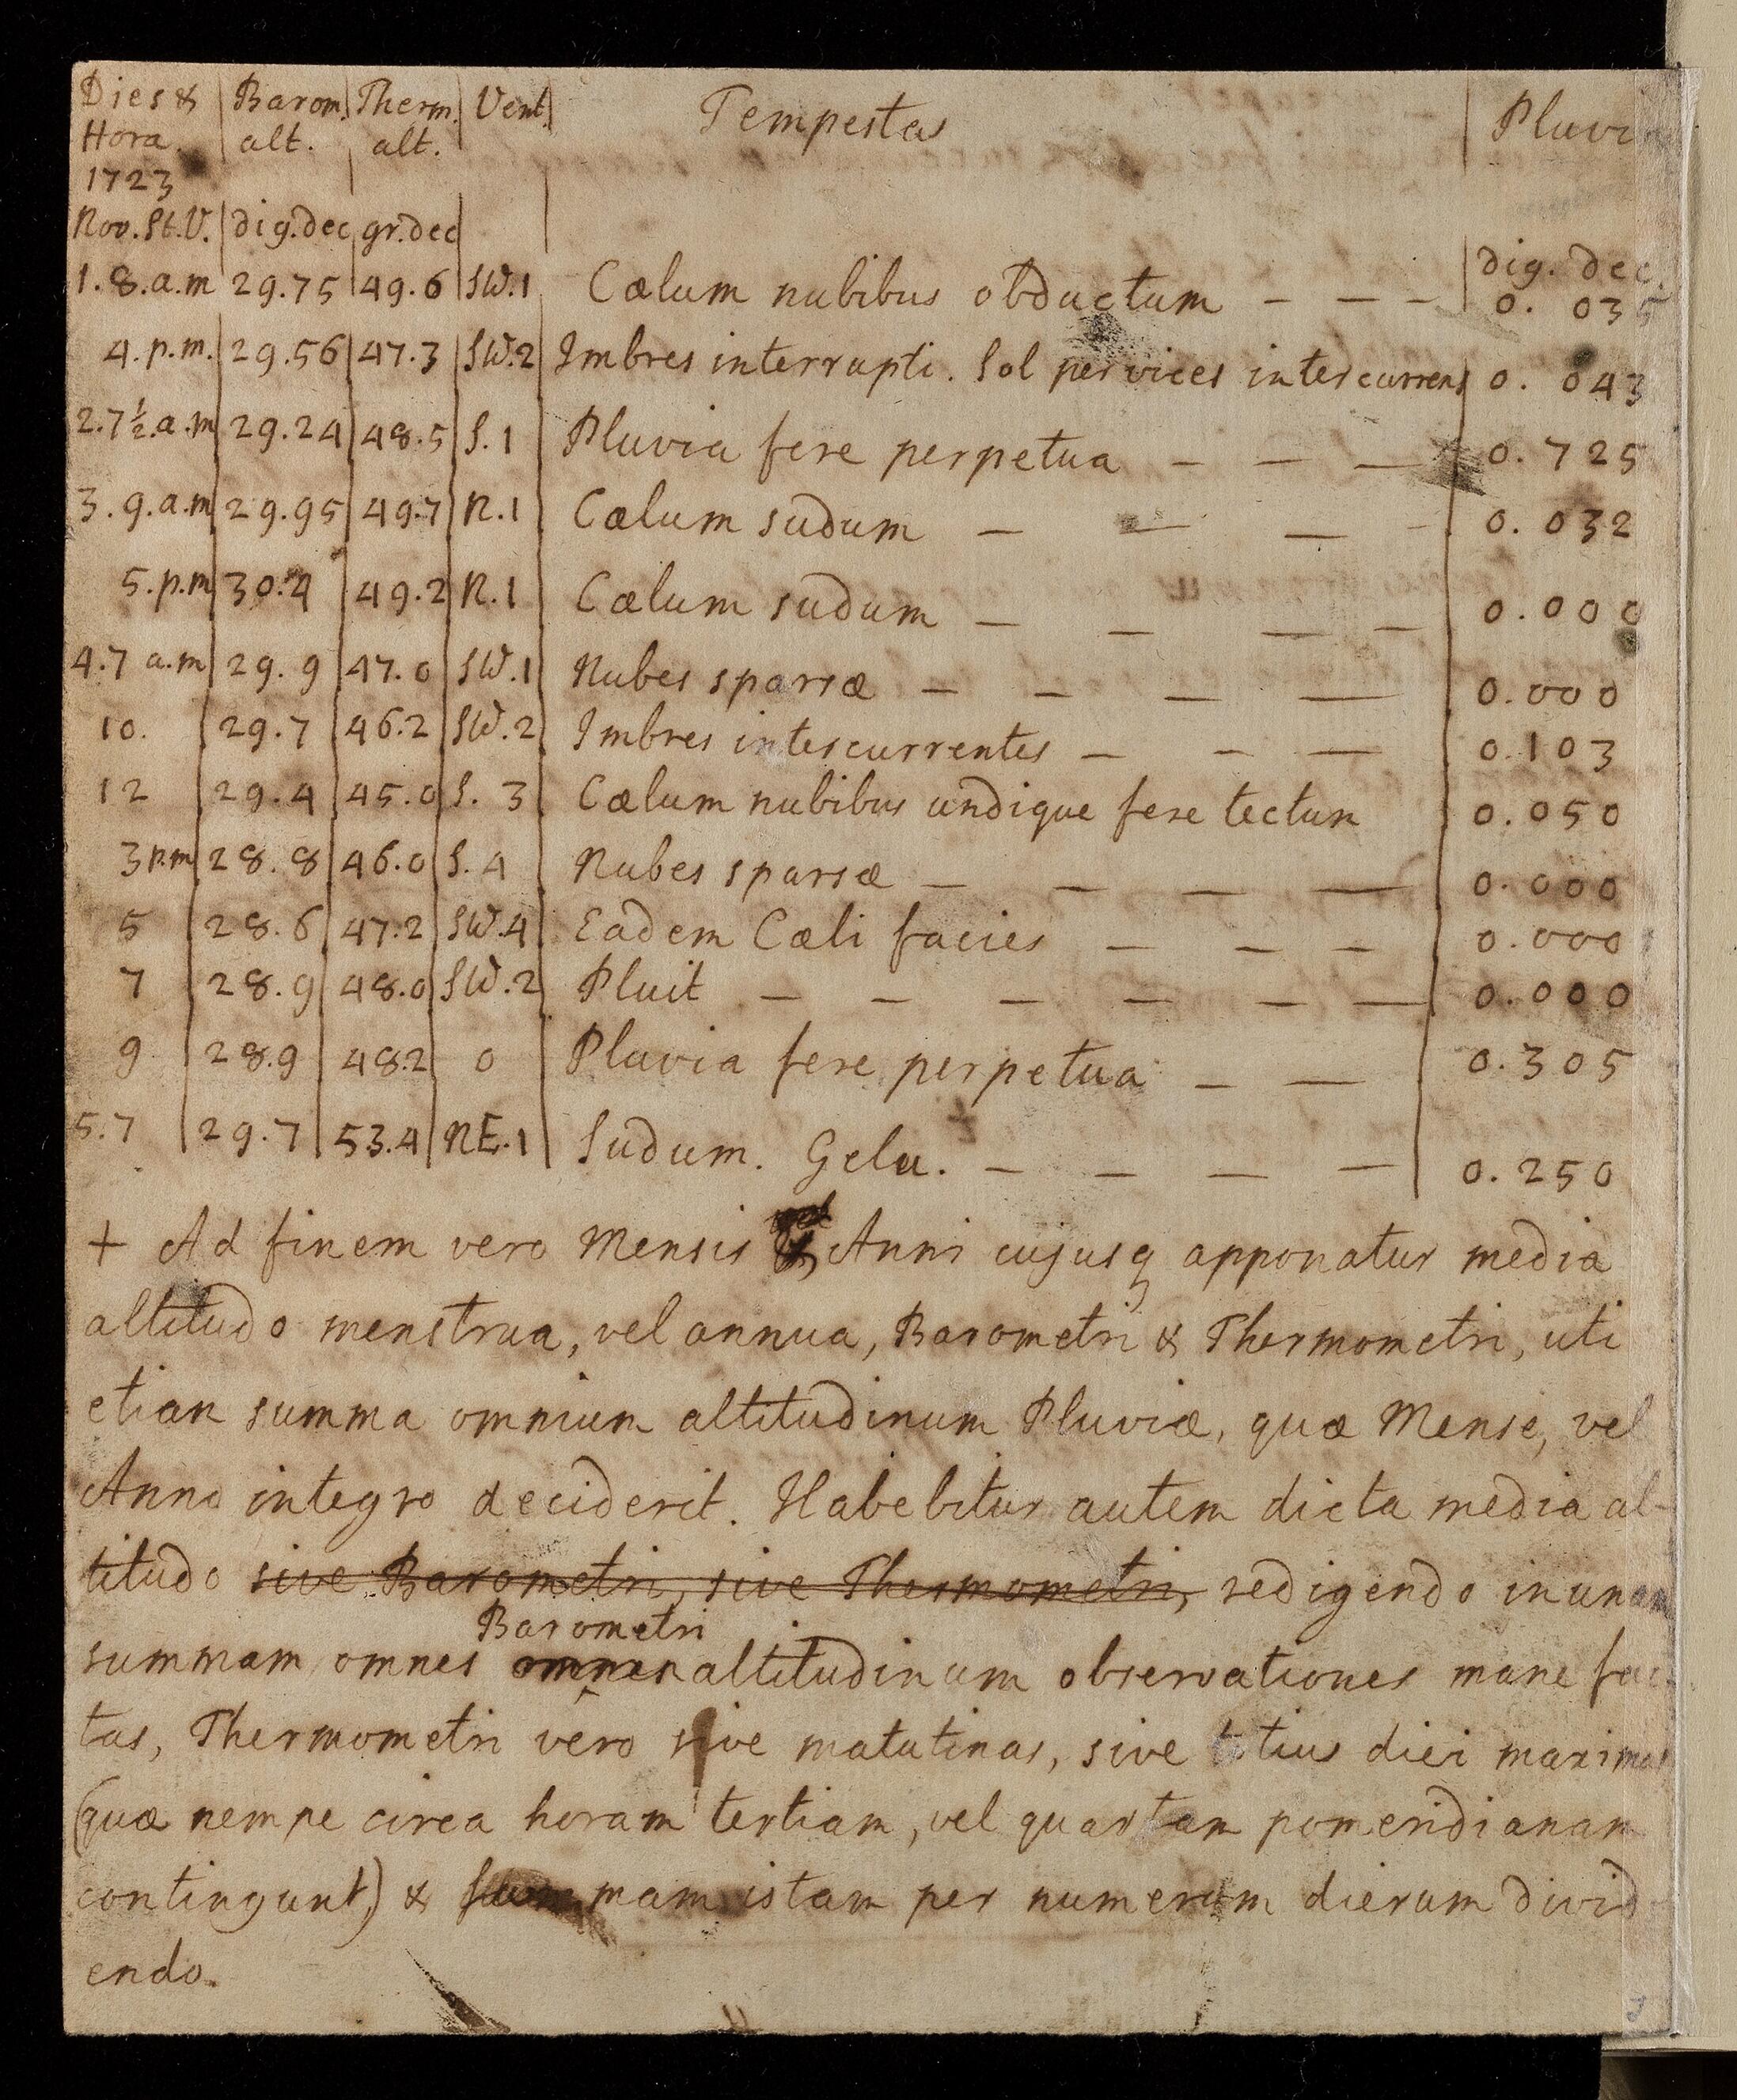 Dies & | Barom. | Therm. | Vent. | Tempestas | Pluvi
Hora. | alt. | alt.
1723
Nov. St. V. | dig. dec | gr. dec | | | dig. dec.
1. 8. a.m | 29.75 | 49.6 | SW.1 | Cœlum nubibus obductum — — — | 0. 035
4. p.m. | 29.56 | 47.3 | SW.2 | Imbres interrupti. Sol per vices intercurrens | 0. 043
2. 7½. a.m | 29.24 | 48.5 | S.1 | Pluvia fere perpetua — — — | 0. 725
3. 9. a.m | 29.95 | 49.7 | N.1 | Cœlum sudum — — — — | 0. 032
5. p.m | 30.4 | 49.2 | N.1 | Cœlum sudum — — — — | 0.000
4. 7 a.m | 29. 9 | 47. 0 | SW.1 | Nubes sparsæ — — — — | 0.000
10. | 29.7 | 46.2 | SW.2 | Imbres intercurrentes — — — | 0.103
12 | 29.4 | 45.0 | S. 3 | Cœlum nubibus undique fere tectum | 0.050
3 p.m | 28. 8 | 46.0 | S. 4 | Nubes sparsæ — — — — | 0.000
5 | 28. 6 | 47.2 | SW.4 | Eadem Cœli facies — — — | 0.000
7 | 28. 9 | 48.0 | SW.2 | Pluit — — — — — — | 0.000
9 | 28.9 | 48.2 | 0 | Pluvia fere perpetua — — | 0.305
5. 7 | 29.7 | 53.4 | NE.1 | Sudum. Gelu. — — — — | 0. 250
+
+ Ad finem vero Mensis vel Anni cujusq apponatur media
altitudo menstrua, vel annua, Barometri & Thermometri, uti
etiam summa omnium altitudinum Pluviæ, quæ Mense, vel
Anno integro deciderit. Habebitur autem dicta media al-
titudo sive Barometri, sive Thermometri, redigendo in unam
Barometri
summam omnes omnes altitudinum observationes mane fac-
tas, Thermometri vero sive matutinas, sive totius diei maximas
(quæ nempe circa horam tertiam, vel quartam pomeridianam
contingunt,) & summam istam per numerum dierum divid
endo.